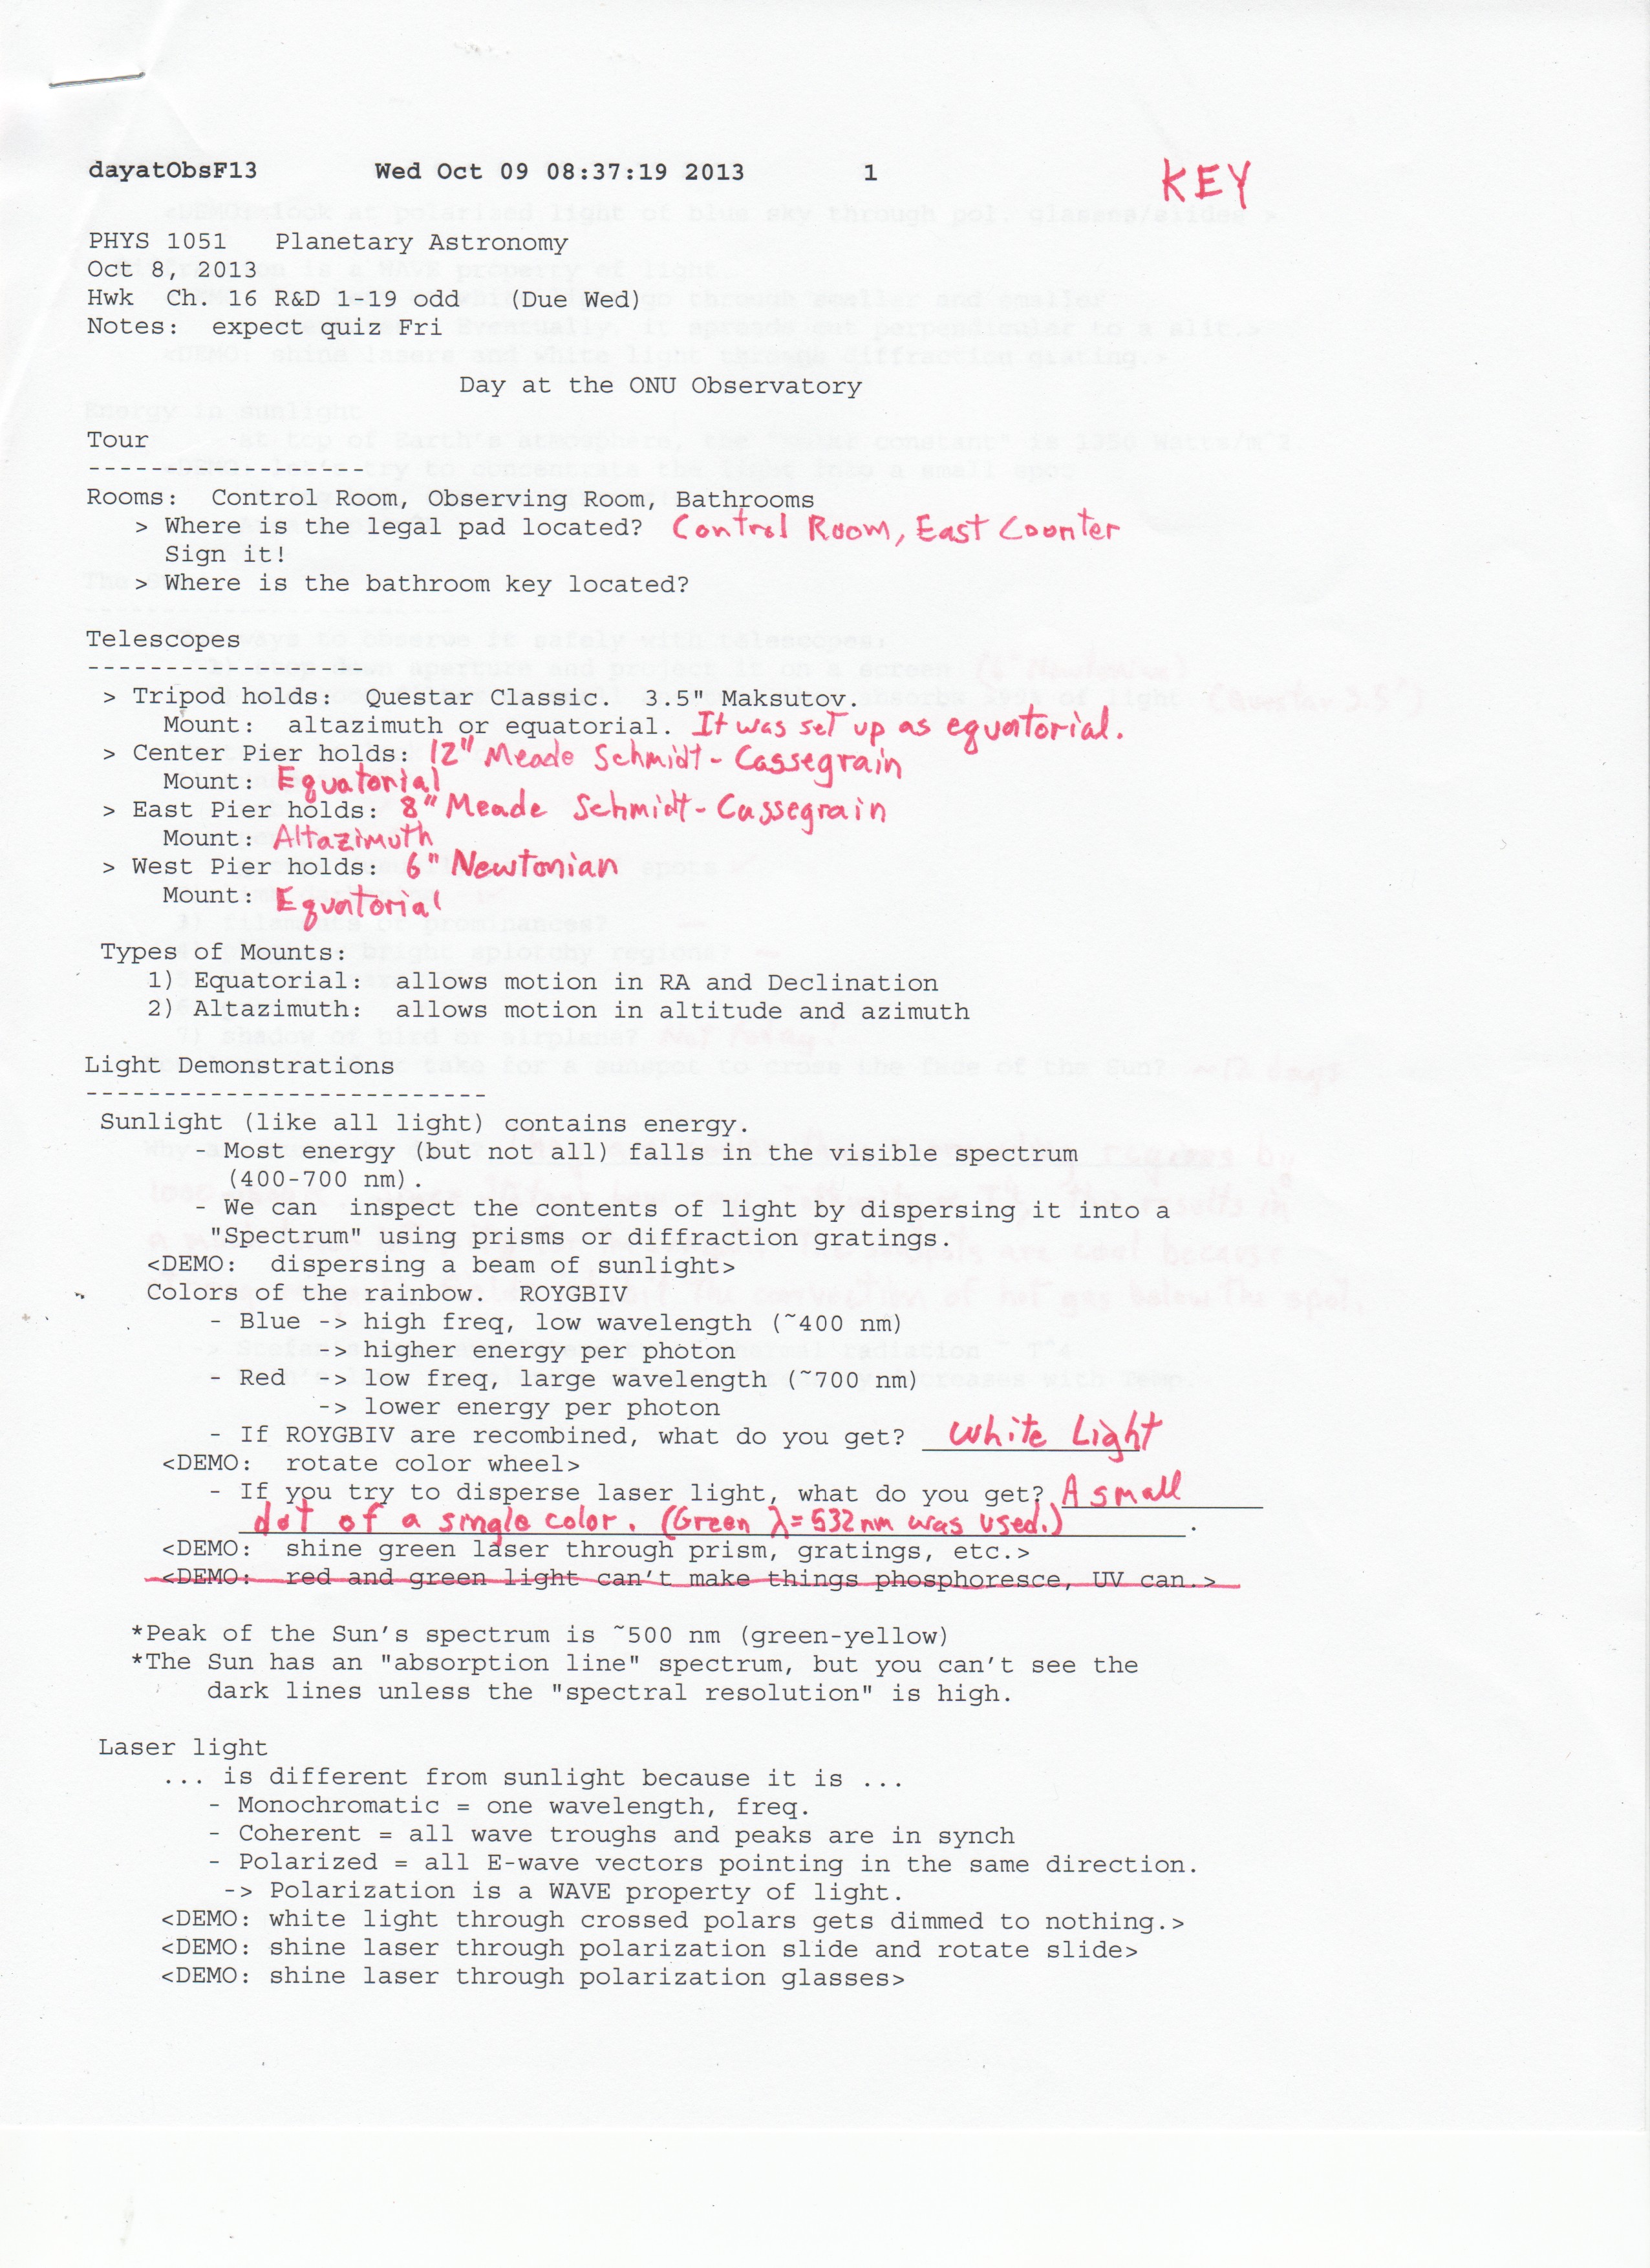 dayatObsF13 Wed Oct 09 08:37:19 2013 1 KEY
PHYS 1051 Planetary Astronomy
Oct 8, 2013
Hwk Ch. 16 R&D 1-19 odd (Due Wed)
Notes: expect quiz Fri
Day at the ONU Observatory
Tour
------------------
Rooms: Control Room, Observing Room, Bathrooms
> Where is the legal pad located? Control Room, East Counter
Sign it!
> Where is the bathroom key located?
Telescopes
------------------
> Tripod holds: Questar Classic. 3.5" Maksutov.
Mount: altazimuth or equatorial. It was set up as equatorial.
> Center Pier holds: 12" Meade Schmidt-Cassegrain
Mount: Equatorial
> East Pier holds: 8" Meade Schmidt-Cassegrain
Mount: Altazimuth
> West Pier holds: 6" Newtonian
Mount: Equatorial
Types of Mounts:
1) Equatorial: allows motion in RA and Declination
2) Altazimuth: allows motion in altitude and azimuth
Light Demonstrations
--------------------------
Sunlight (like all light) contains energy.
- Most energy (but not all) falls in the visible spectrum
(400-700 nm).
- We can inspect the contents of light by dispersing it into a
"Spectrum" using prisms or diffraction gratings.
<DEMO: dispersing a beam of sunlight>
Colors of the rainbow. ROYGBIV
- Blue -> high freq, low wavelength (~400 nm)
-> higher energy per photon
- Red -> low freq, large wavelength (~700 nm)
-> lower energy per photon
- If ROYGBIV are recombined, what do you get? White Light
<DEMO: rotate color wheel>
- If you try to disperse laser light, what do you get? A small
dot of a single color. (Green λ=532nm was used.) .
<DEMO: shine green laser through prism, gratings, etc.>
<DEMO: red and green light can't make things phosphoresce, UV can.>
*Peak of the Sun's spectrum is ~500 nm (green-yellow)
*The Sun has an "absorption line" spectrum, but you can't see the
dark lines unless the "spectral resolution" is high.
Laser light
... is different from sunlight because it is ...
- Monochromatic = one wavelength, freq.
- Coherent = all wave troughs and peaks are in synch
- Polarized = all E-wave vectors pointing in the same direction.
-> Polarization is a WAVE property of light.
<DEMO: white light through crossed polars gets dimmed to nothing.>
<DEMO: shine laser through polarization slide and rotate slide>
<DEMO: shine laser through polarization glasses>